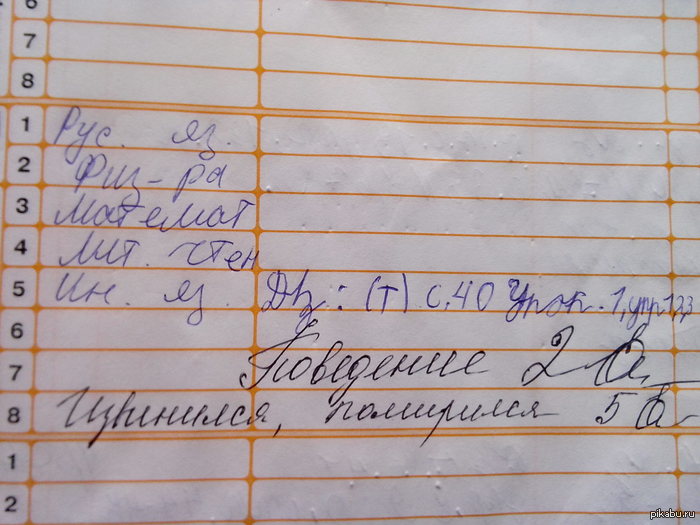 6
7
8
1 Рус. яз.
2 Физ-ра
3 Математ
4 Лит. чтен
5 Ин. яз. Дз: (т) с.40 Урок.1, упр1,2,3
6
7 Поведение 2
8 Извинился, помирился 5
1
2
pikabu.ru